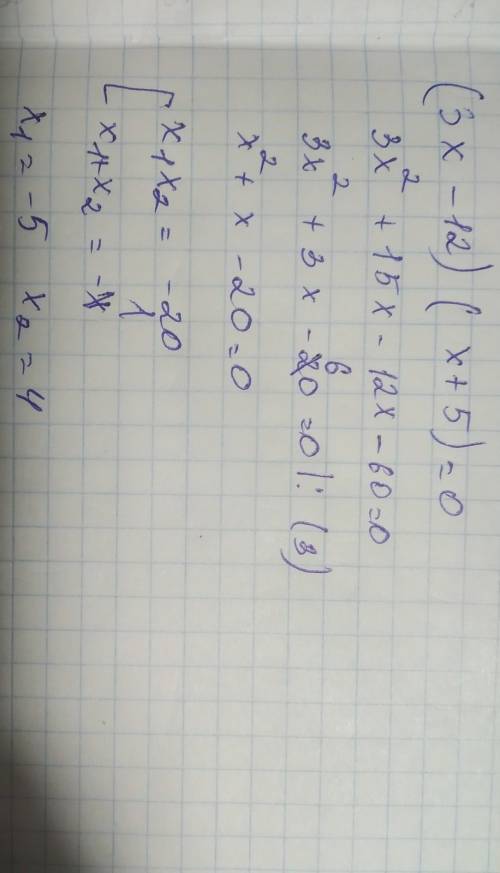 (3x - 12) ( x + 5) = 0
3x² + 15x - 12x - 60 = 0
3x² + 3x - 60 = 0 |: (3)
x² + x - 20 = 0
[ x₁x₂ = -20
x₁+x₂ = -1
x₁ = -5 x₂ = 4